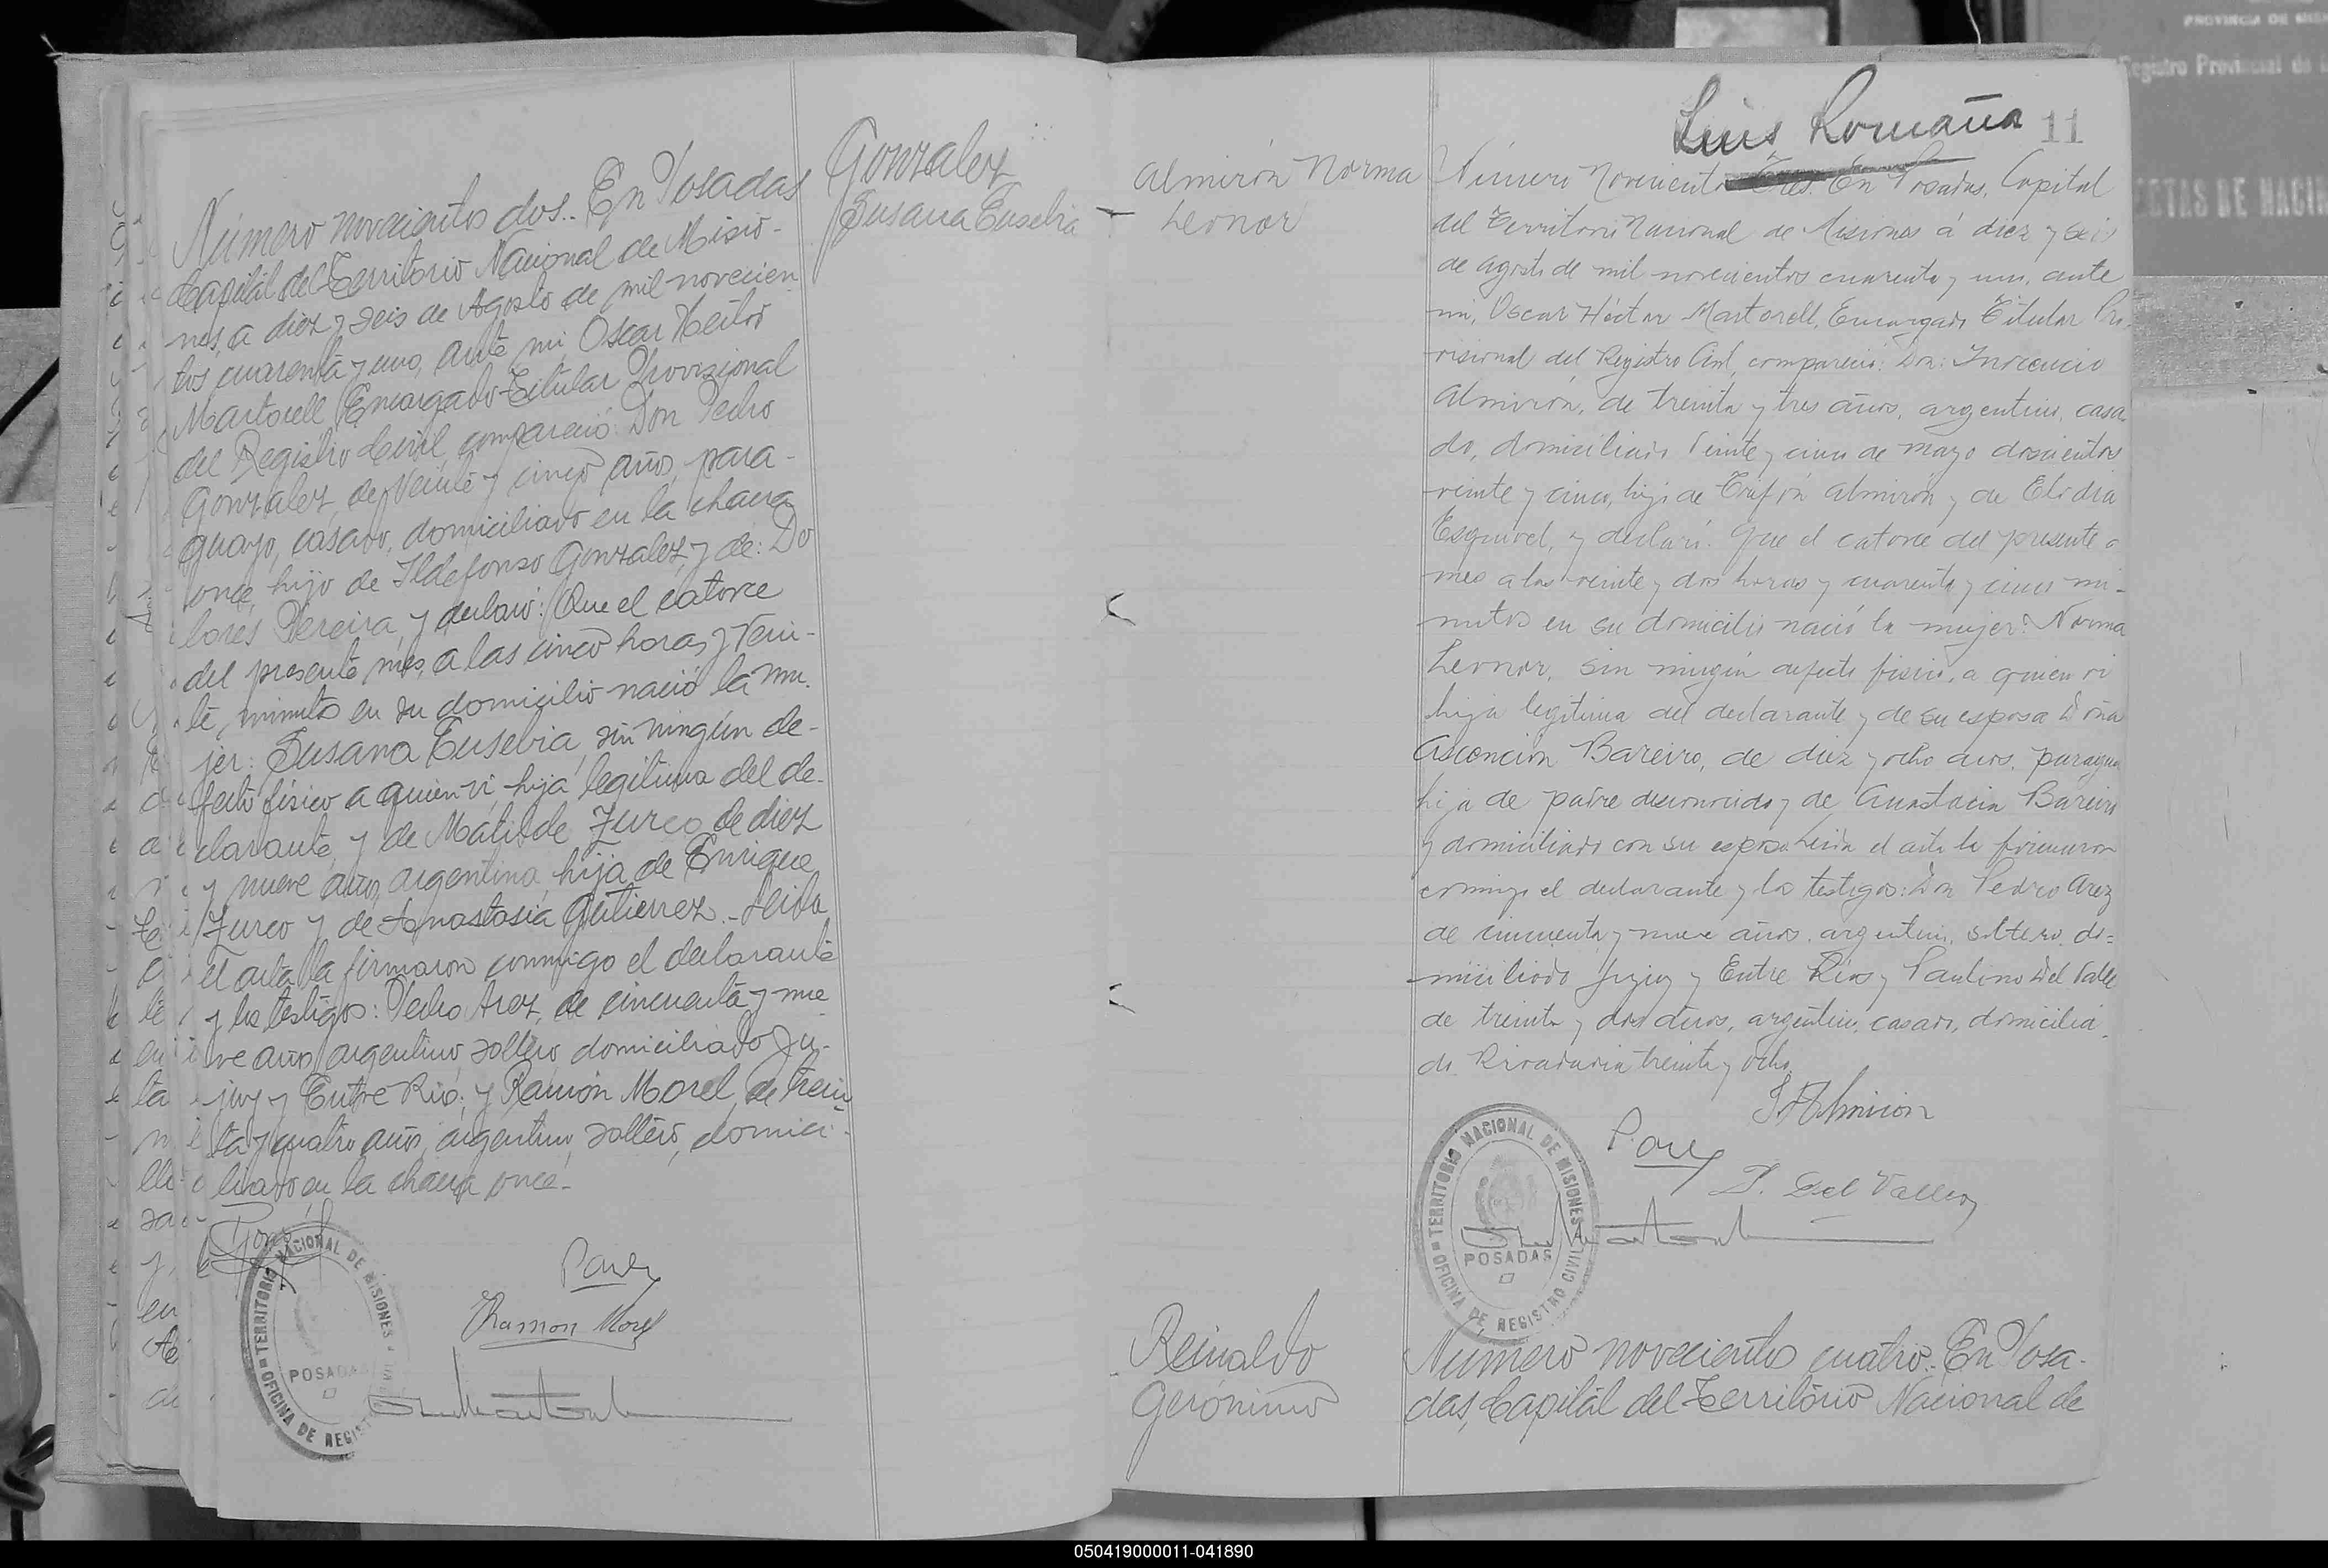 Gonzalez
Susana Eusebia
Número novecientos dos.. En Posadas
Capital del Territorio Nacional de Misio-
nes, a diez y seis de Agosto de mil novecien
tos cuarenta y uno, ante mi, Oscar Hector
Martorell Encargado Titular Provisional
del Registro Civil, compareció: Don Pedro
Gonzalez, de veinte y cinco años, para-
guayo, casado, domiciliado en la chacra
once, hijo de Ildefonso Gonzalez, y de: Do
lores Pereira, y declaró: Que el catorce
del presente mes, a las cinco horas y vein-
te, minutos en su domicilio nació la mu-
jer: Susana Eusebia, sin ningún de-
fecto físico a quien vi, hija legitima del de-
clarante, y de Matilde Zurco, de diez
y nueve años, argentina, hija de Enrique
Zurco y de Anastasia Gutierrez.- Leida
el acta la firmaron conmigo el declarante
y los testigos: Pedro Arez, de cincuenta y nue
ve años, argentino, soltero, domiciliado Ju-
juy y Entre Rios; y Ramón Morel, de trein
ta y cuatro años, argentino, soltero, domici-
liado en la chacra once.-
Ramon Morel
TERRITORIO NACIONAL DE MISIONES
POSADAS
OFICINA DE REGIST
Luis Romaña 11
Almirón Norma
Leonor
Número Novecientos Tres. En Posadas, Capital
del Territorio Nacional de Misiones á diez y seis
de agosto de mil novecientos cuarenta y uno, ante
mi, Oscar Héctor Martorell, Encargado Titular Pro-
visional del Registro Civil, compareció: Don: Inocencio
Almirón, de treinta y tres años, argentino, casa-
do, domiciliado Veinte y cinco de mayo doscientos
veinte y cinco, hijo de Trifón Almirón y de Elodia
Esquivel, y declaró: Que el catorce del presente
mes a las veinte y dos horas y cuarenta y cinco mi-
nutos en su domicilio nació la mujer: Norma
Leonor, sin ningún defecto fisico, a quien vi
hija legitima del declarante y de su esposa Doña
Ascencion Bareiro, de diez y ocho años, paragua
hija de padre desconocido y de Anastacia Bareiro
y domiciliado con su esposo. Leida el acta la firmaron
conmigo el declarante y los testigos: Don Pedro Arez
de cincuenta y nueve años, argentino, soltero, do-
miciliado Jujuy y Entre Rios y Paulino Del Valle
de treinta y dos años, argentino, casado, domicilia-
do Rivadavia treinta y ocho.
I Almiron
P. Arez
P. Del Valle
TERRITORIO NACIONAL DE MISIONES
POSADAS
OFICINA DE REGISTRO CIVIL
Reinaldo
Gerónimo
Número novecientos cuatro.- En Posa-
das, Capital del Territorio Nacional de
PROVINCIA DE MIS
Registro Provincial de
ACTAS DE NACIM
050419000011-041890